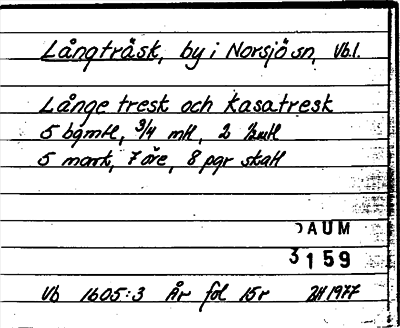 Långträsk, by i Norsjö sn, Vb.l.
Långe tresk och Kasatresk
5 bgmtl, 3/4 mtl, 2
5 mark, 7 öre, 8 pgr skatt
DAUM
3159
Vb 1605:3 År fol 15r 2H1977